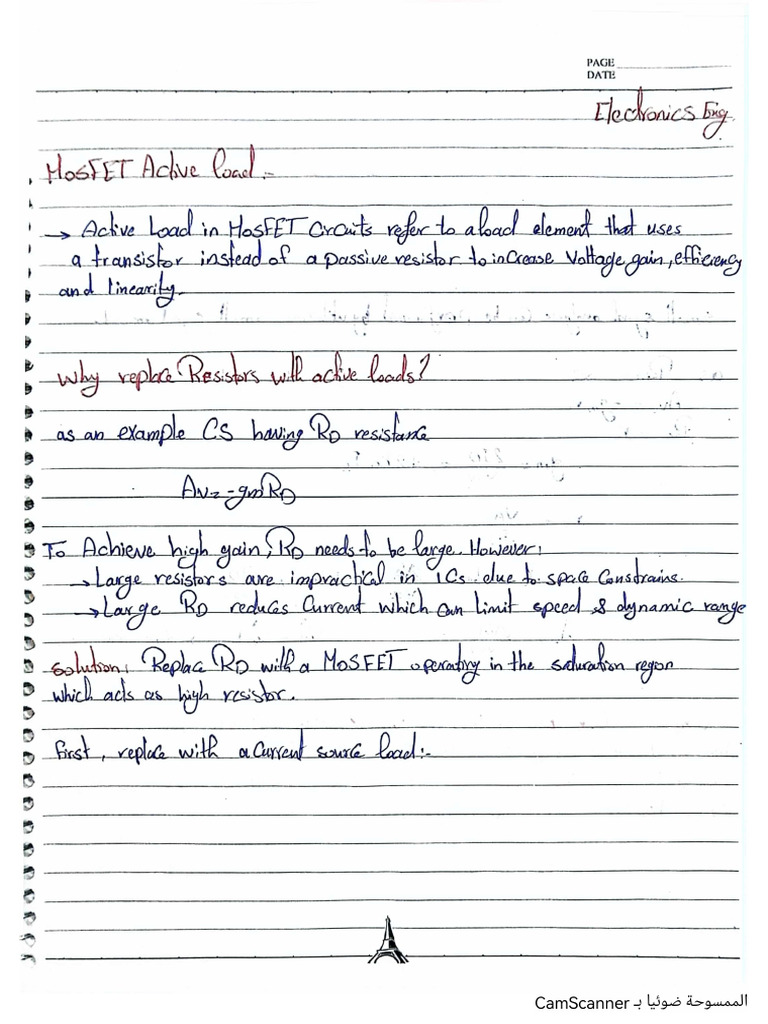 PAGE
DATE
Electronics Eng.
MosFET Active load:-
→ Active Load in MosFET Circuits refer to a load element that uses
a transistor instead of a passive resistor to increase Voltage gain, efficiency
and linearity.
Why replace Resistors with active loads?
as an example CS having RD resistance
Av = -gmRD
To Achieve high gain, RD needs to be large. However:
→ Large resistors are impractical in ICs due to space Constrains.
→ Large RD reduces Current which can limit speed & dynamic range
solution: Replace RD with a MOSFET operating in the saturation region
which acts as high resistor.
First, replace with a current source load:-
الممسوحة ضوئيا بـ CamScanner